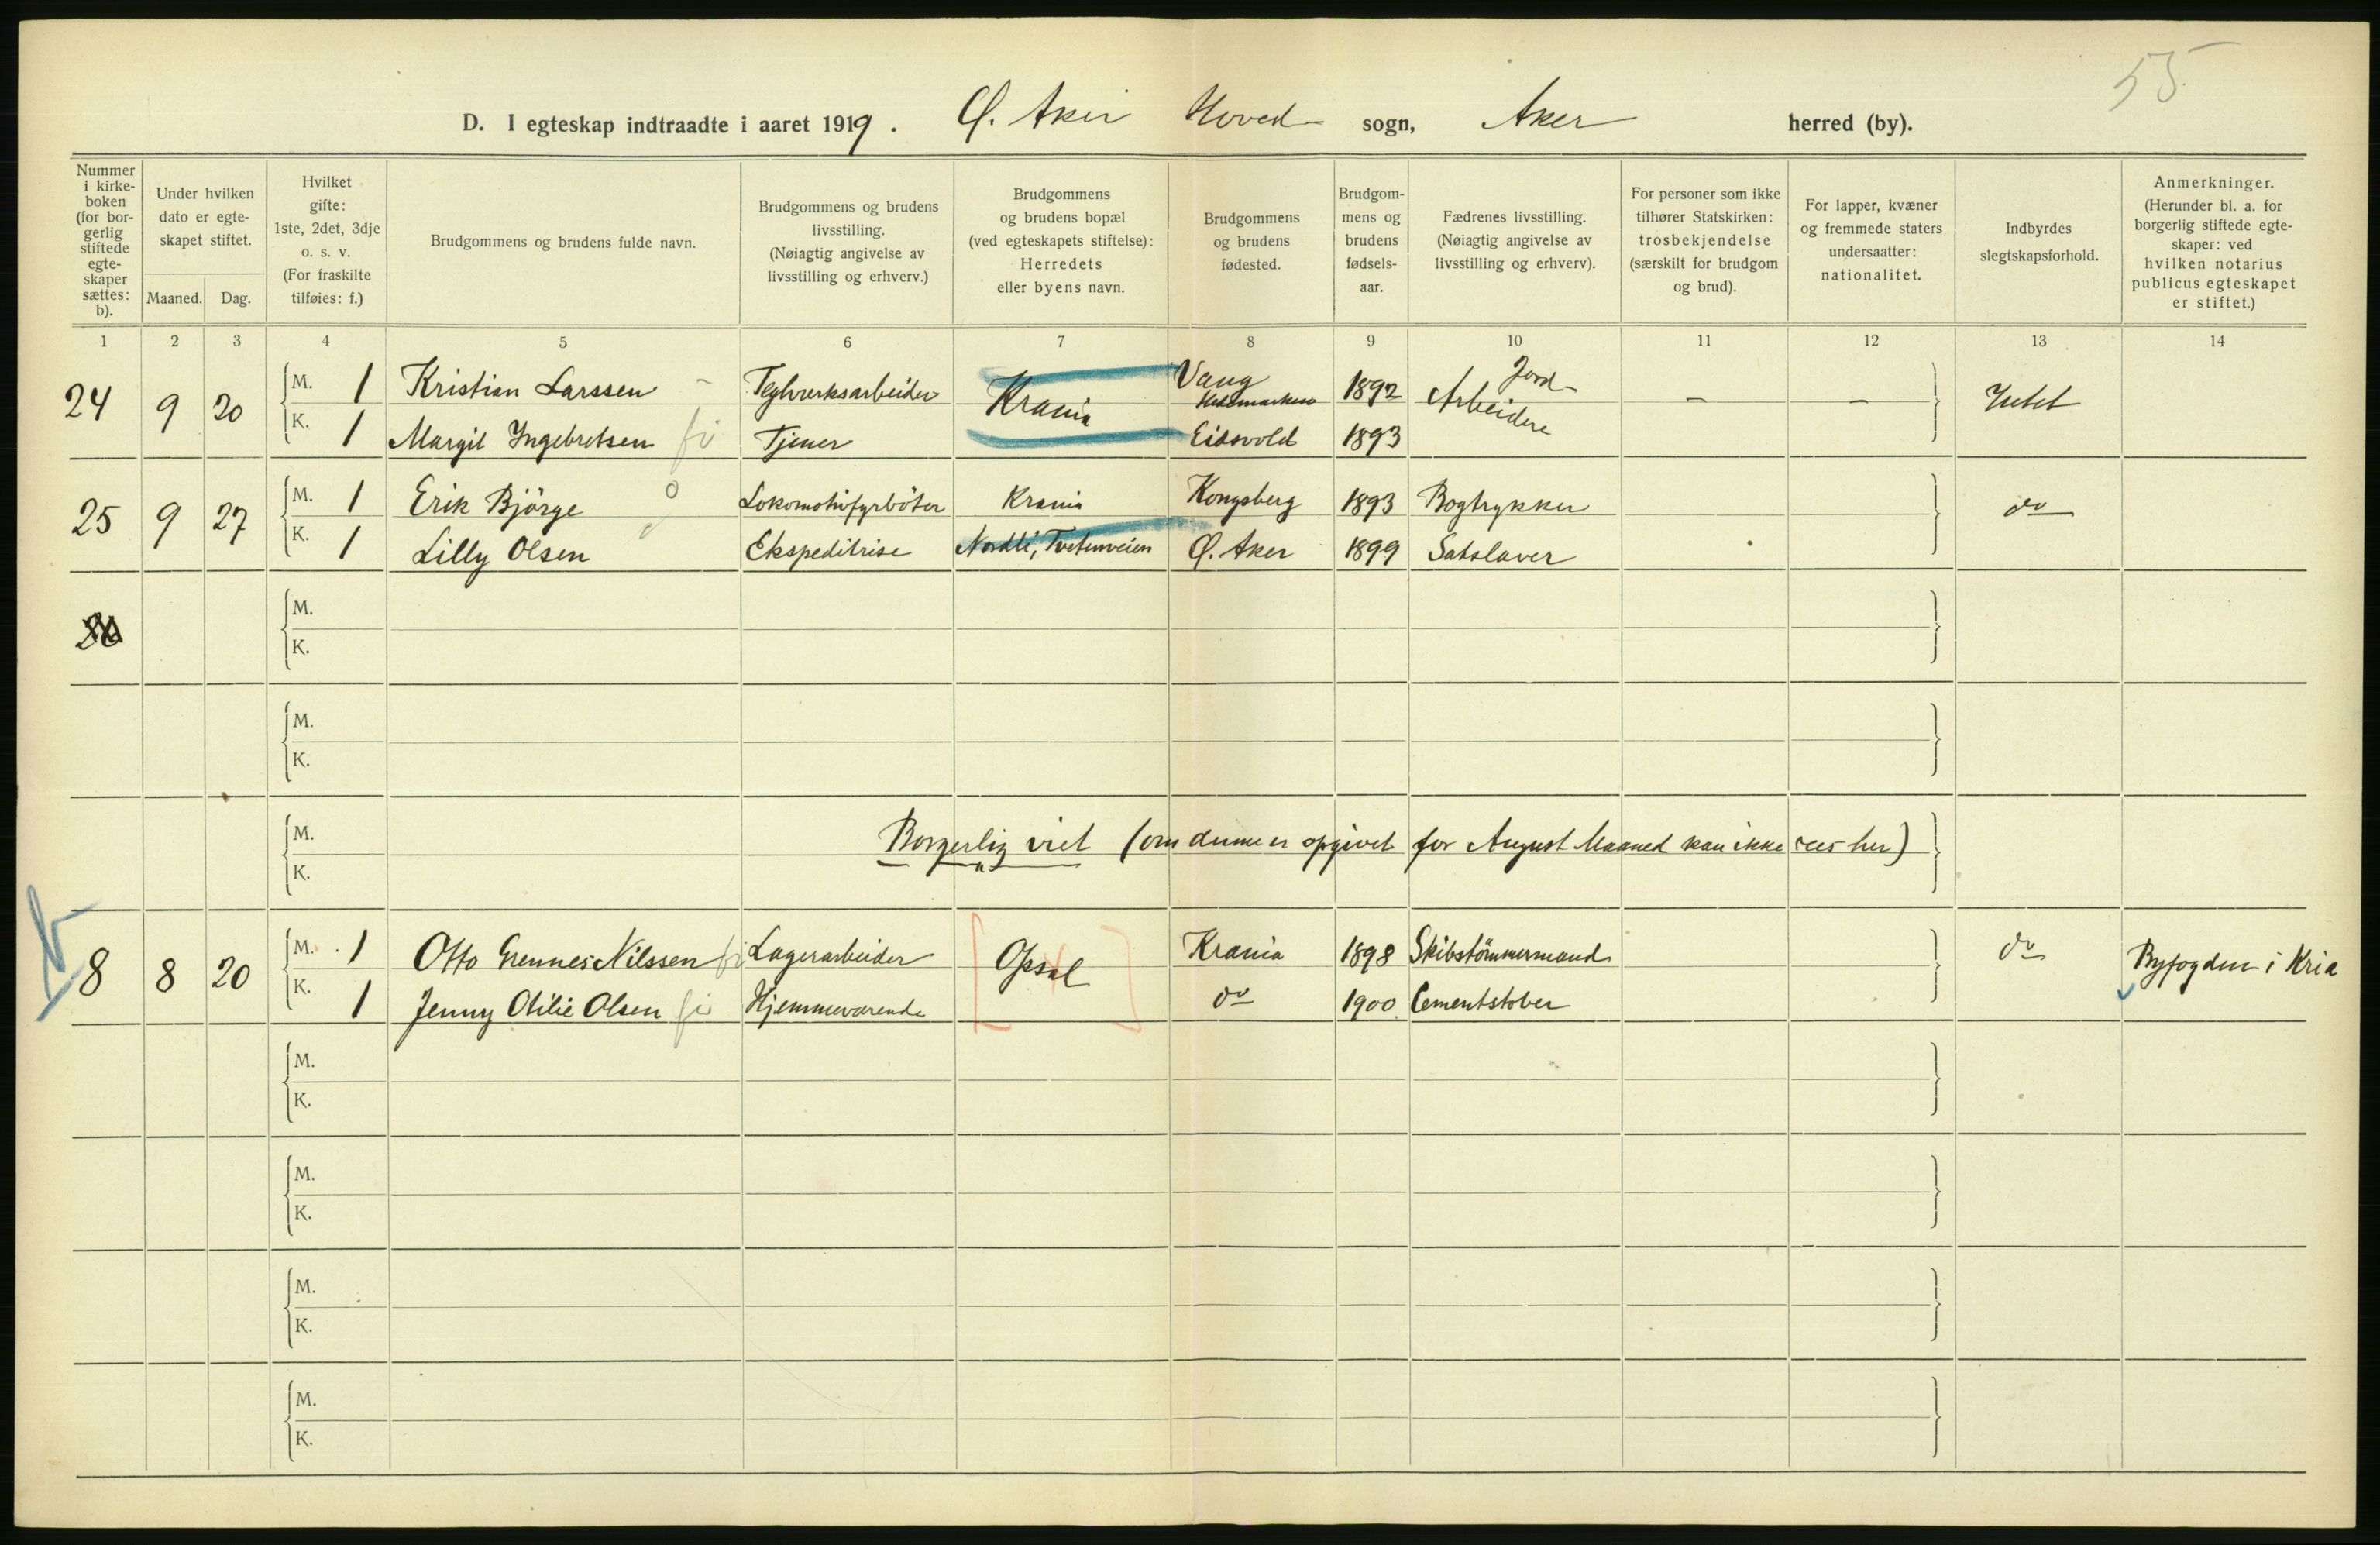 55
D. I egteskap indtraadte i aaret 1919. Ø. Aker Hoved sogn, Aker herred (by).
Nummer i kirkeboken (for borgerlig stiftede egteskaper sættes: b).
Under hvilken dato er egteskapet stiftet.
Maaned. Dag.
Hvilket gifte: 1ste, 2det, 3dje o. s. v. (For fraskilte tilføies: f.)
Brudgommens og brudens fulde navn.
Brudgommens og brudens livsstilling. (Nøiagtig angivelse av livsstilling og erhverv.)
Brudgommens og brudens bopæl (ved egteskapets stiftelse): Herredets eller byens navn.
Brudgommens og brudens fødested.
Brudgommens og brudens fødselsaar.
Fædrenes livsstilling. (Nøiagtig angivelse av livsstilling og erhverv).
For personer som ikke tilhører Statskirken: trosbekjendelse (særskilt for brudgom og brud).
For lapper, kvæner og fremmede staters undersaatter: nationalitet.
Indbyrdes slegtskapsforhold.
Anmerkninger. (Herunder bl. a. for borgerlig stiftede egteskaper: ved hvilken notarius publicus egteskapet er stiftet.)
1 2 3 4 5 6 7 8 9 10 11 12 13 14
24 9 20 M. 1 Kristian Larssen Teglverksarbeider Krania Vang Hedemarken 1892 Jord- Arbeidere – – Intet
K. 1 Margit Ingebretsen Tjener Eidsvold 1893
25 9 27 M. 1 Erik Bjørge Lokomotivfyrbøter Krania Kongsberg 1893 Bogtrykker do
K. 1 Lilly Olsen Ekspeditrise Nordli, Tvetenveien Ø. Aker 1899 Satslaver
26 M.
K.
M.
K.
M. Borgerlig viet (om denne er opgivet for August Maaned kan ikke sees her)
K.
8 8 20 M. 1 Otto Grennes Nilssen Lagerarbeider Opsal Krania 1898 Skibstømmermand do Byfogden i Kria
K. 1 Jenny Otilie Olsen Hjemmeværende do 1900 Cementstøber
M.
K.
M.
K.
M.
K.
M.
K.